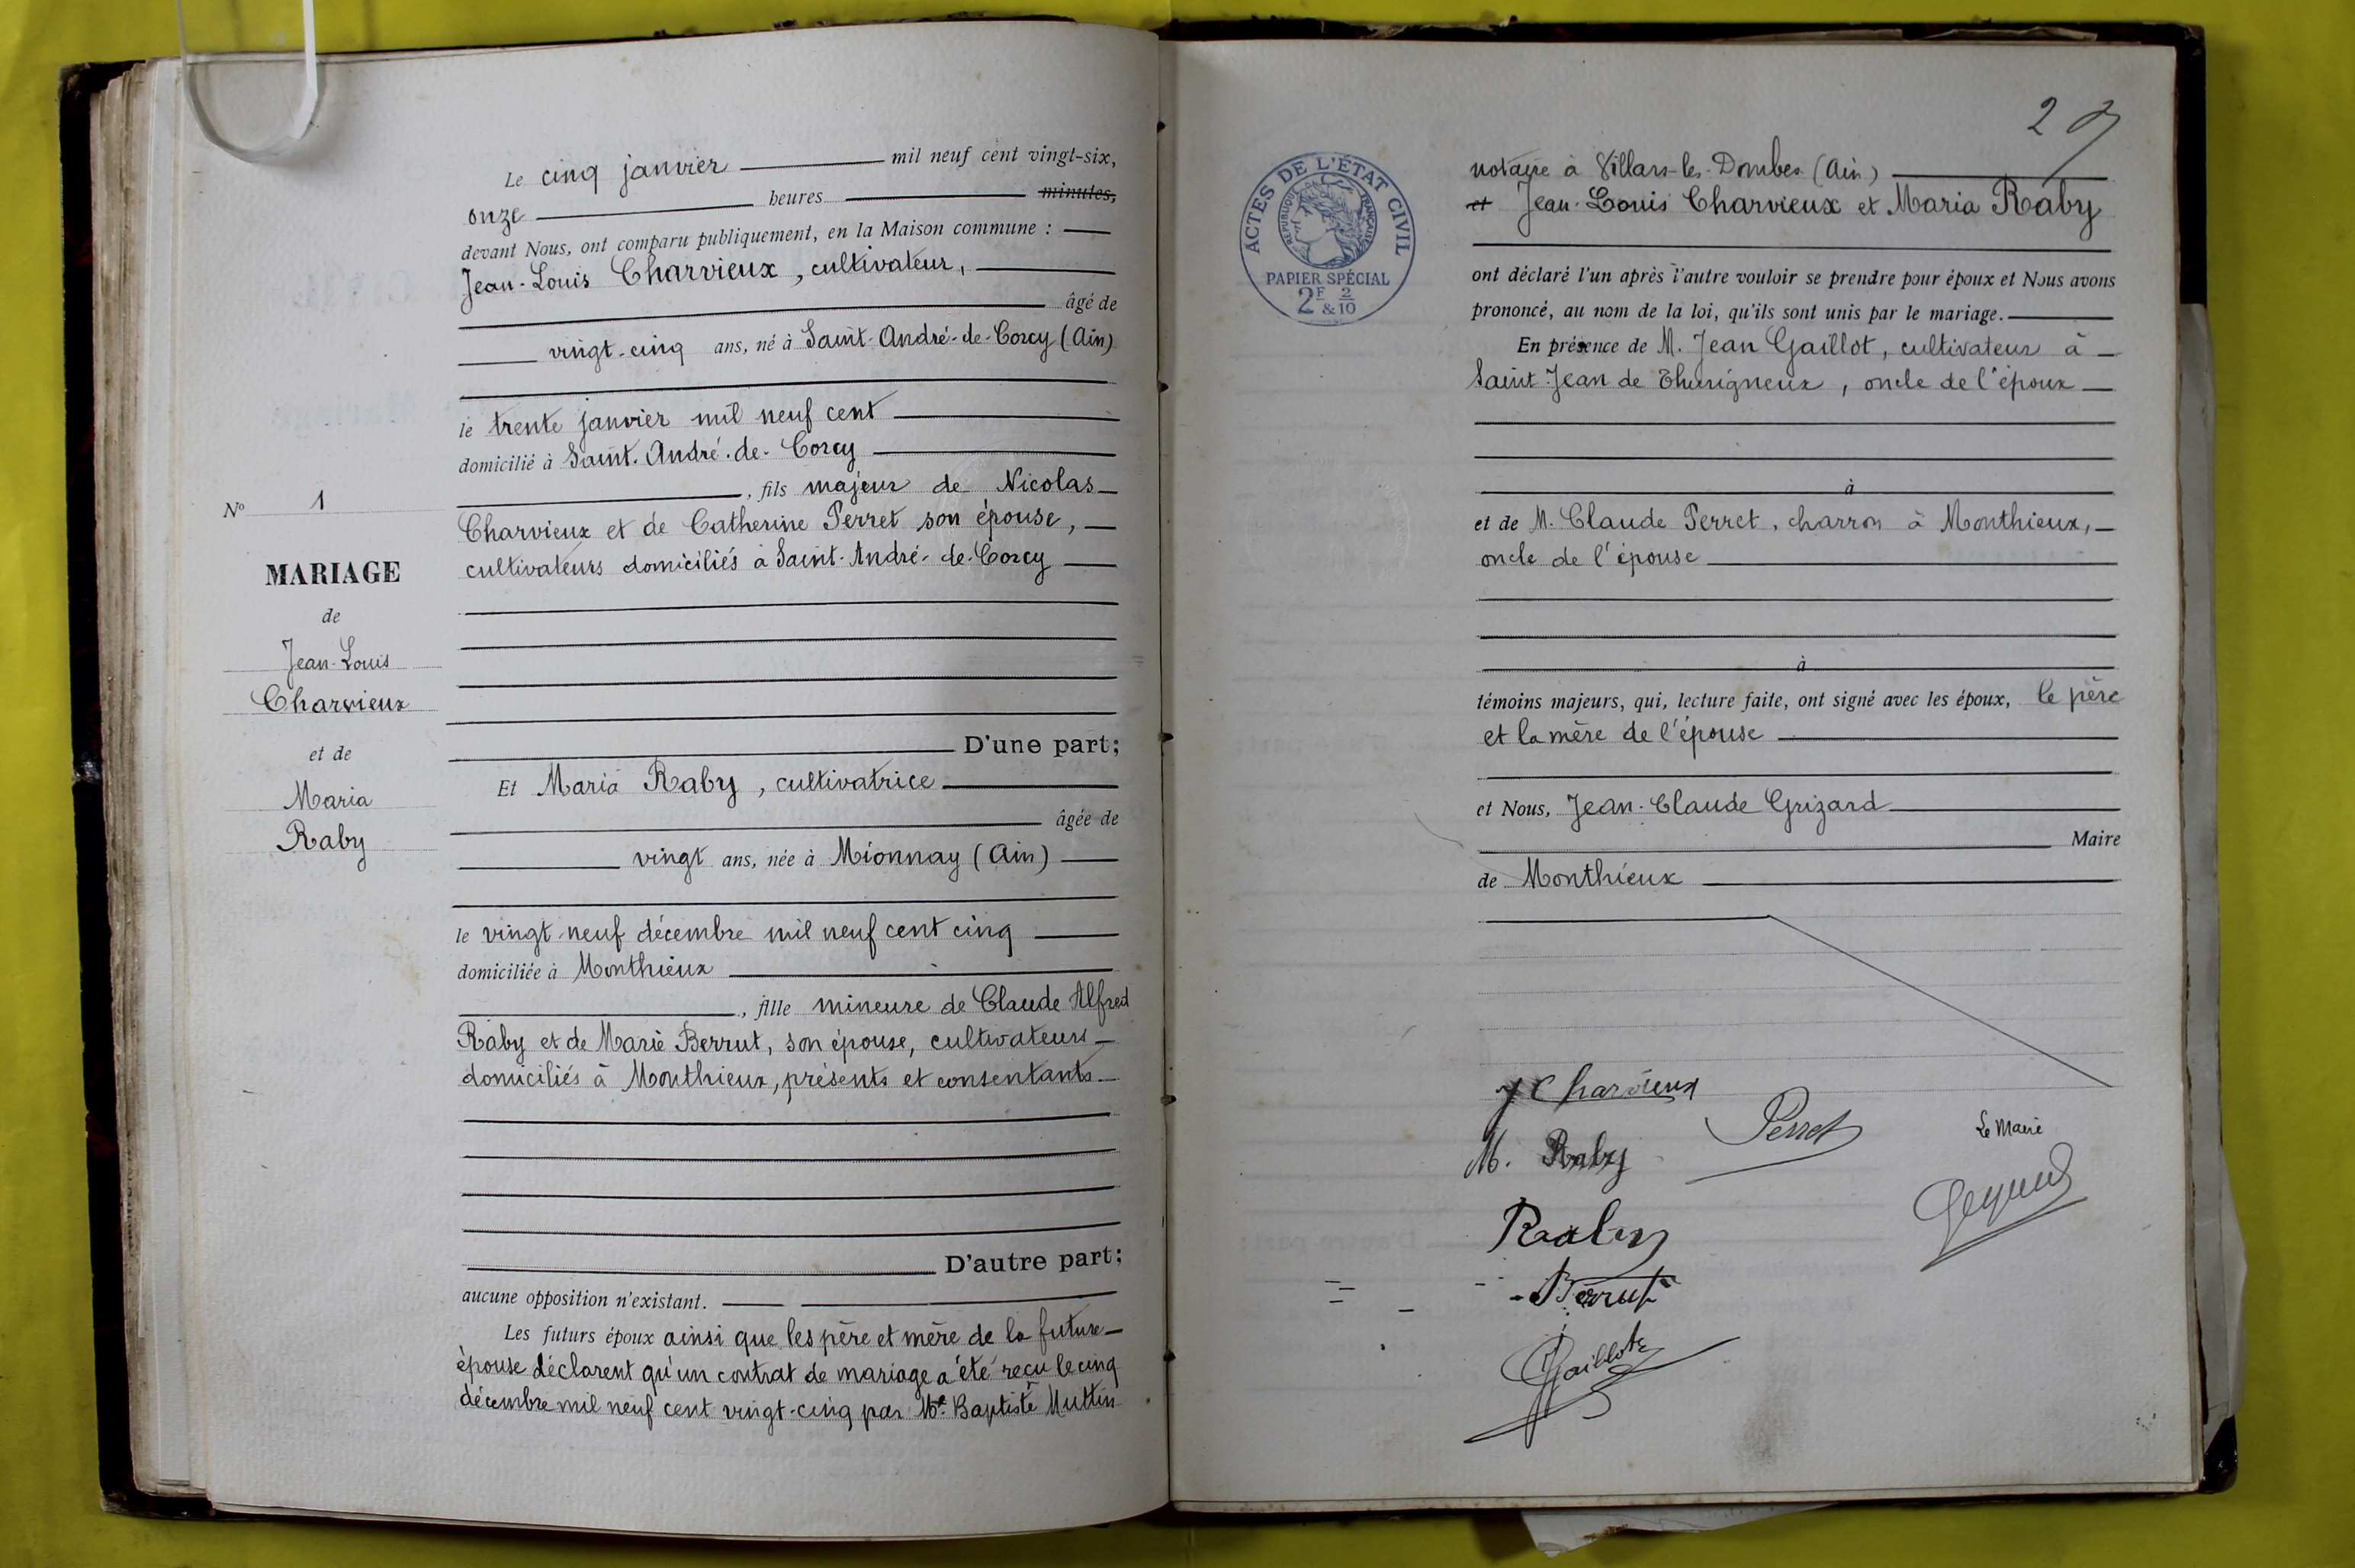 Le cinq janvier mil neuf cent vingt-six,
onze heures minutes,
devant Nous, ont comparu publiquement, en la Maison commune :
Jean-Louis Charvieux, cultivateur,
âgé de
vingt-cinq ans, né à Saint-André-de-Corcy (Ain)
le trente janvier mil neuf cent
domicilié à Saint-André-de-Corcy
, fils majeur de Nicolas
Charvieux et de Catherine Perret son épouse,
cultivateurs domiciliés à Saint-André-de-Corcy
D'une part;
Et Maria Raby, cultivatrice
âgée de
vingt ans, née à Mionnay (Ain)
le vingt-neuf décembre mil neuf cent cinq
domiciliée à Monthieux
, fille mineure de Claude Alfred
Raby et de Marie Berrut, son épouse, cultivateurs
domiciliés à Monthieux, présents et consentants
D'autre part;
aucune opposition n'existant.
Les futurs époux ainsi que les père et mère de la future
épouse déclarent qu'un contrat de mariage a été reçu le cinq
décembre mil neuf cent vingt-cinq par Me Baptiste Muttin
No 1
MARIAGE
de
Jean-Louis
Charvieux
et de
Maria
Raby
2
ACTES DE L'ÉTAT CIVIL
RÉPUBLIQUE FRANÇAISE
PAPIER SPÉCIAL
2F & 2/10
notaire à Villars-les-Dombes (Ain)
et Jean-Louis Charvieux et Maria Raby
ont déclaré l'un après l'autre vouloir se prendre pour époux et Nous avons
prononcé, au nom de la loi, qu'ils sont unis par le mariage.
En présence de M. Jean Gaillot, cultivateur à
Saint-Jean de Thurigneux, oncle de l'époux
à
et de M. Claude Perret, charron à Monthieux,
oncle de l'épouse
à
témoins majeurs, qui, lecture faite, ont signé avec les époux, le père
et la mère de l'épouse
et Nous, Jean-Claude Grizard
Maire
de Monthieux
J Charvieux
M. Raby
Perret
Le Maire
Raby
Berrut
Gaillot